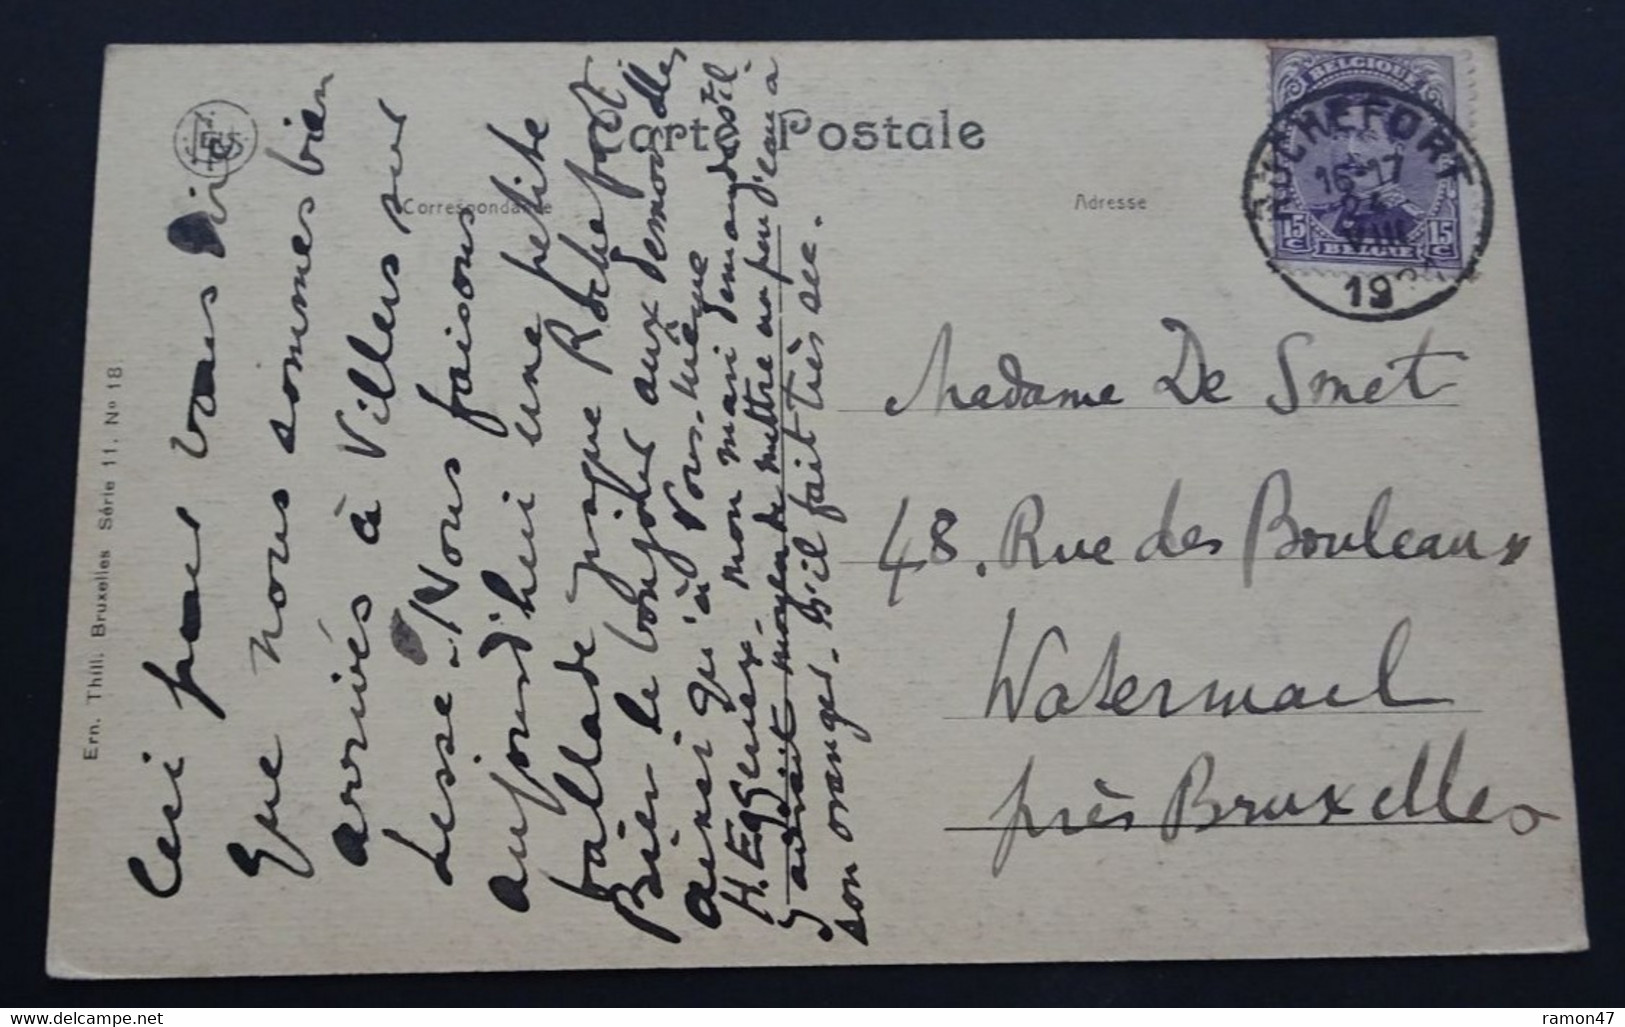 Carte Postale
Correspondance
Adresse
Ern. Thill. Bruxelles Série 11. No 18.
Ceci pour vous dire
que nous sommes bien
arrivés à Villers sur
Lesse. Nous faisons
aujourd'hui une petite
ballade jusque Rochefort.
Bien le bonjour aux demoiselles
ainsi qu'à Vous-même
H. Eggerier. Mon mari demande s'il
y aurait moyen de mettre un peu d'eau à
son oranger. S'il fait très sec.
BELGIQUE
15 C
15 C
BELGIË
ROCHEFORT
16-17
VIII
19
Madame De Smet
48. Rue des Bouleaux
Watermael
près Bruxelles
delcampe.net
ramon47